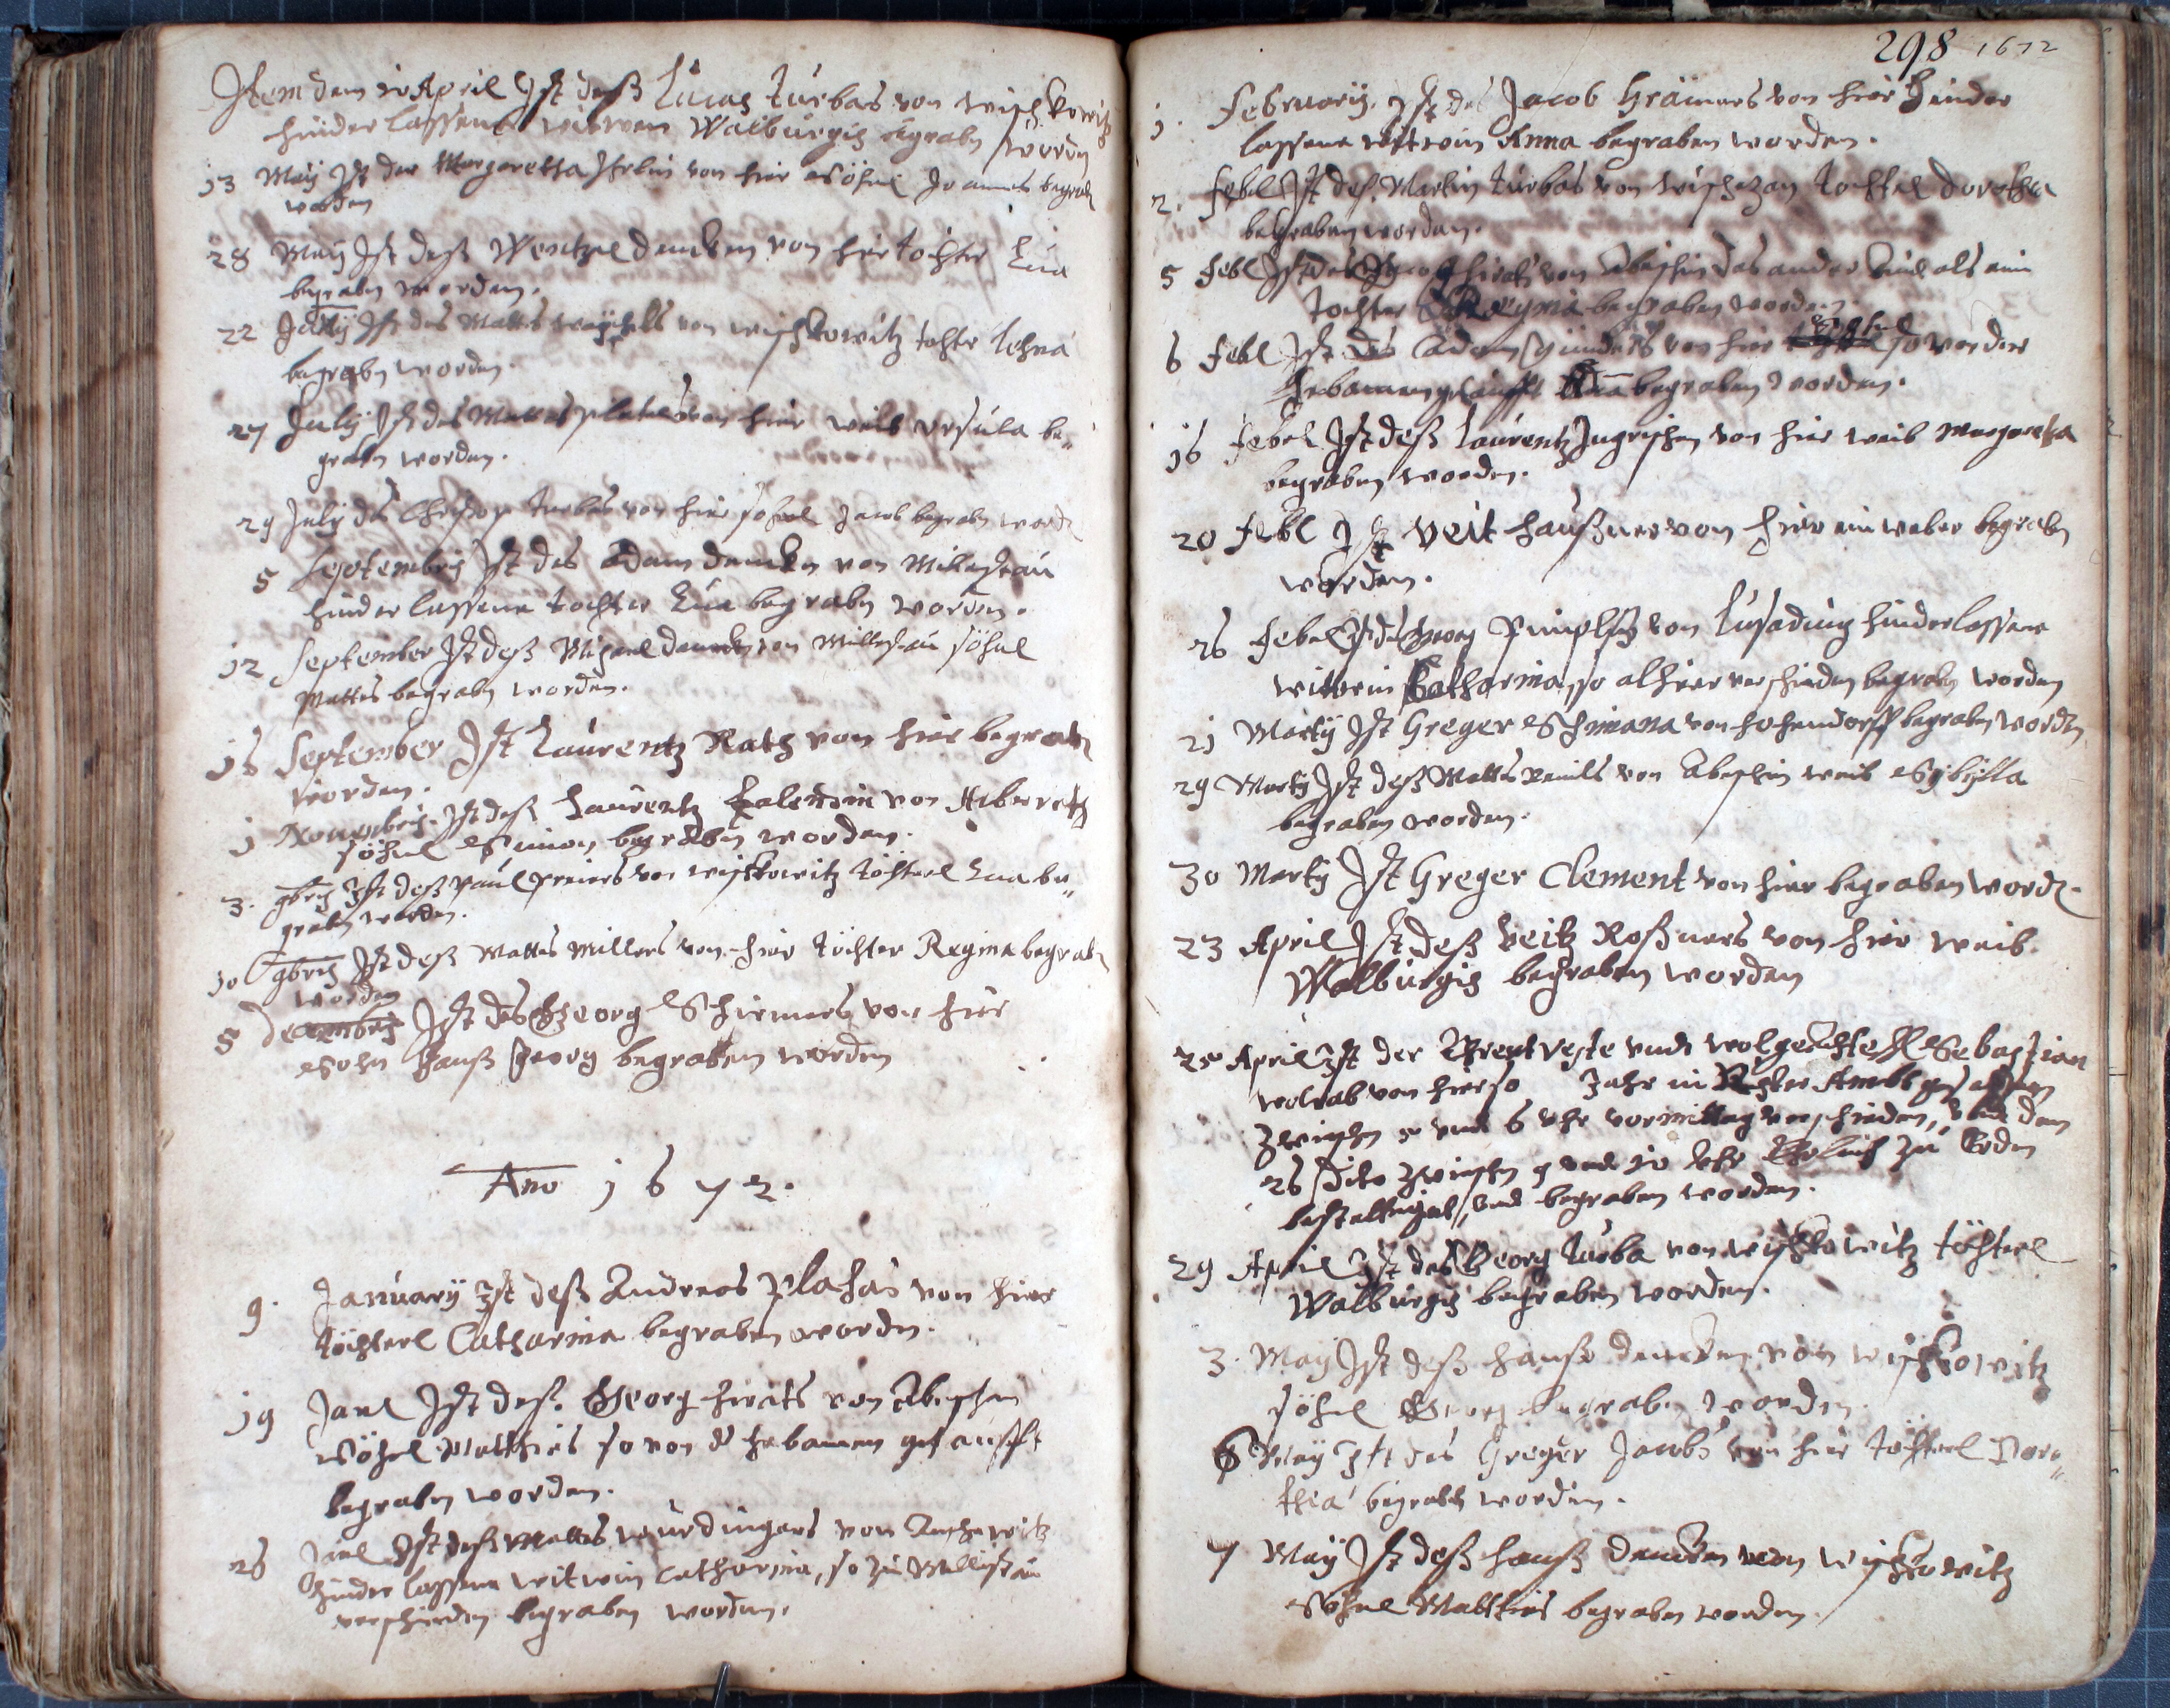 Item den 10 April Ist deß Lucas Turbas von Wischkowitz
hinderlassene witwen Walburgis begraben worden
13 Maij Ist der Margaretha von hier Söhnl Joannes begrabn
worden
28 Maij Ist deß Wentzel dencken von hier tochter Eva
begrabn worden.
22 Julij Ist des Mattes von wischkowitz tochter Lehna
begrabn worden.
27 Julij Ist des Mattes von hier weib Ursula be„
grabn worden.
29 Julij des Christoph Turbas von hier söhnl Jacob begrabn word
5 Septembris Ist des Adam dencken von Milleschau
hinderlassene tochter Eva begrabn worden.
12 September Ist deß Michael dencken von Milleschau söhnl
Mattes begrabn worden.
16 September Ist Laurentz Rath von hier begrabn
worden.
1 Novembris Ist deß Laurentz von
söhnl Simon begraben worden.
3. 9bris Ist deß Paul von wischkowitz töchterl Eva be„
graben worden.
10 9bris Ist deß Mattes Millers von hier töchter Regina begrabn
worden
5 decembris Ist des Georg Schirmers von hier
Sohn Hanß Georg begraben worden
Ano 1672.
9. Januarij Ist deß Andreas Plahas von hier
töchterl Catharina begraben worden.
19 Janl Ist deß Georg hirats von Abaschin
Söhnl Matthias so von d hebamen getaufft
begrabn worden.
26 Janl Ist deß Mattes wurdingers von Auschowitz
hinderlassene witwin Catharina, so zu Milleschau
verschieden begraben worden.
298 1672
1. Februarij Ist des Jacob Gramers von hier hinder
lassene wittwin Anna begraben worden.
2. Febl Ist deß Martin Turbas von tochterl dorothea
begraben worden.
5 Febl Ist des hirats von Abaschin das ander Kind als ein
tochter Regina begraben worden.
6 Febl Ist des Adam von hier so von der
hebamen getaufft begraben worden.
16 Febl Ist deß Laurentz von hier weib Margaretha
begraben worden.
20 Febl Ist Veit haußner von hier ein weber begraben
worden.
26 Febl Ist des Georg von Lusading hinderlassene
witwin Catharina, so alhier verschieden begrabn worden
21 Martij Ist Greger Schimana von hohendorff begraben worden
29 Martij Ist deß Mattes von Abaschin weib Sybilla
begraben worden.
30 Martij Ist Greger Clement von hier begraben word.
23 April Ist deß Veitz Roßners von hier weib
Walburgis begraben worden
25 April Ist der Ehrentveste und wolgeachte H Sebastian
wolrab von hier so Jahr in Richter Ambt gesessen
zwischen 5 und 6 uhr vormittag verschieden, und den
26 dito zwischen 9 und 10 uhr Ehrlich zu Erden
bestattigat, und begraben worden.
29 April Ist des Georg Turba von wischkowitz töchterl
Walburgis begraben worden.
3. Maij Ist deß Hanß dencken von wischkowitz
söhnl Georg begrabn worden.
6 Maij Ist des Greger Jacobs von hier töchterl Doro„
thea begrabn worden.
7 Maij Ist deß Hanß dencken von Wischkowitz
Söhnl Matthias begraben worden.